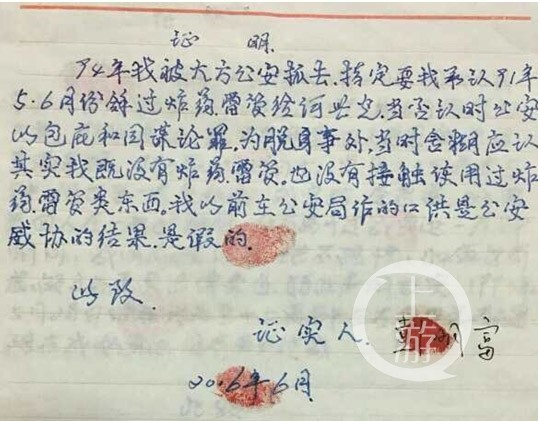 证 明
94年我被大方公安抓去.指定要我承认91年
5.6月份给过炸药.雷管给何兴光,当否认时公安
以包庇和同谋论罪.为脱身事外,当时含糊应认
其实我既没有炸药.雷管.也没有接触使用过炸
药.雷管类东西.我以前在公安局作的口洪是公安
威协的结果.是假的.
此致.
证实人. 富
2016年6月.
上游